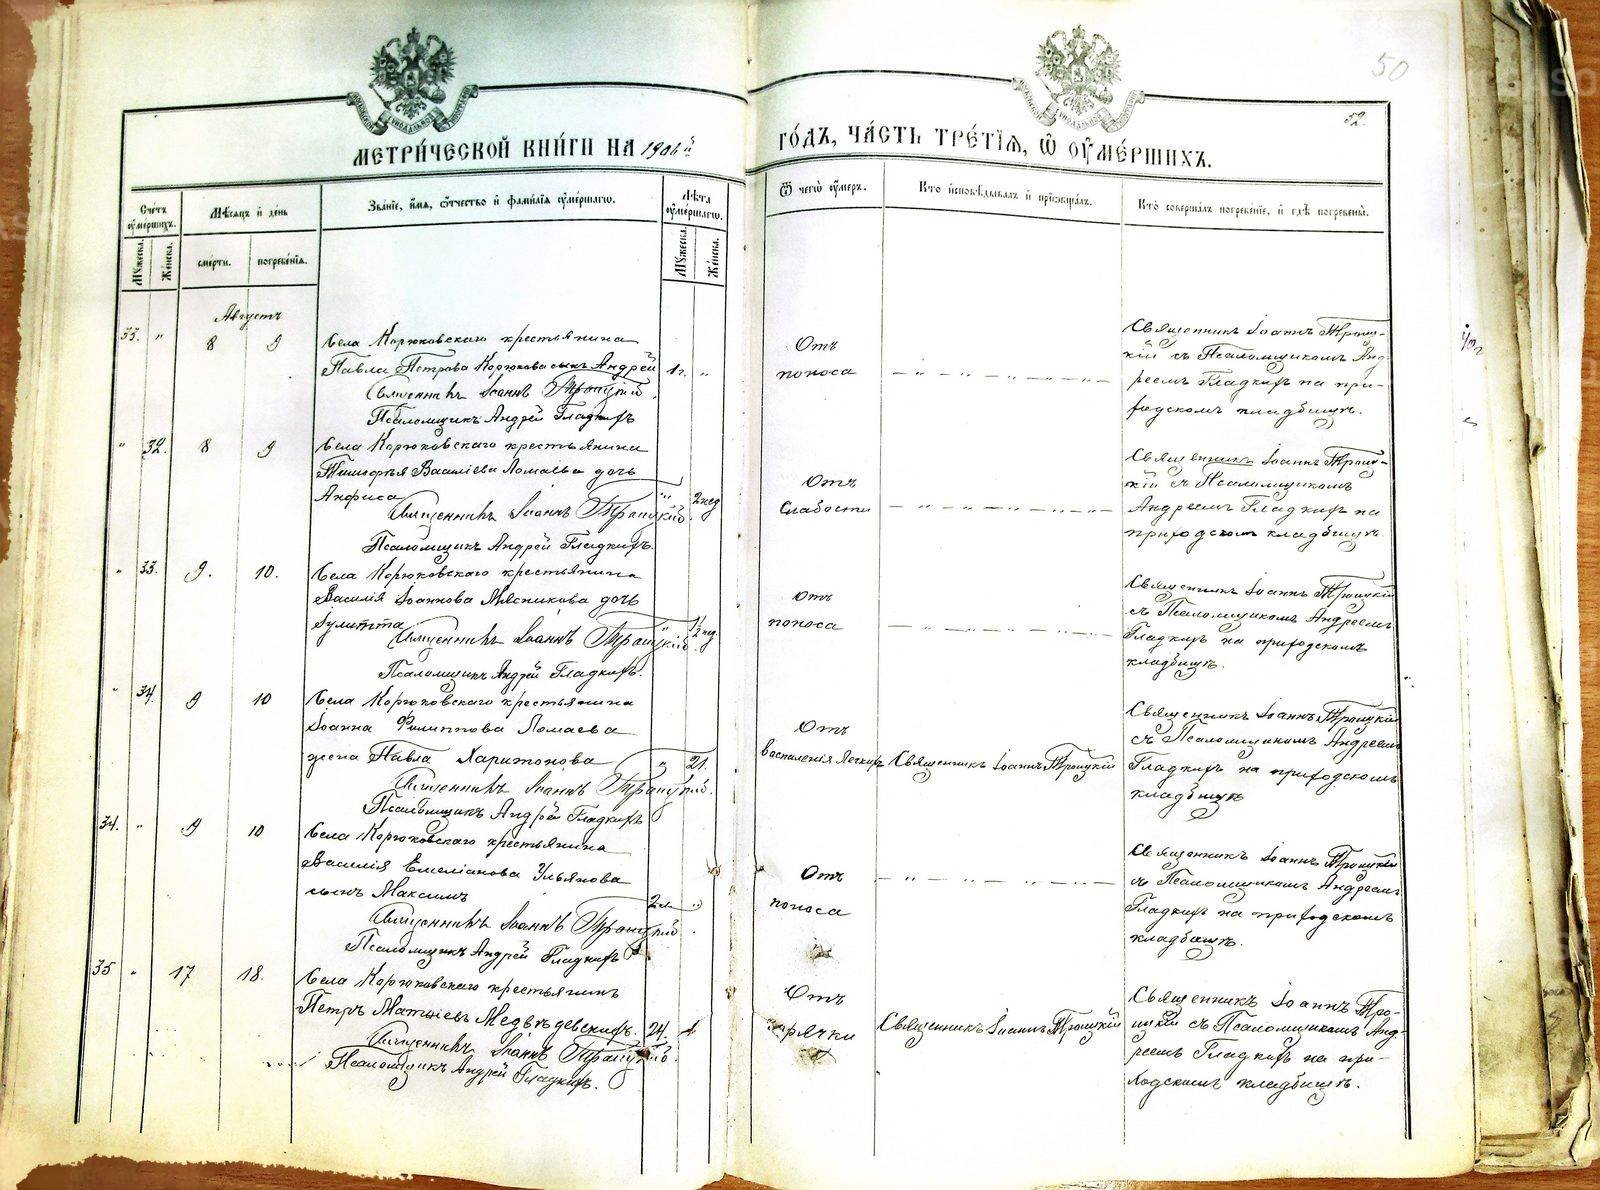 50
52.
МЕТРИ́ЧЕСКОЙ КНИ́ГИ НА 1904й
ГО́ДЪ, ЧА́СТЬ ТРЕ́ТІЯ, Ѽ ОУМЕ́РШИХЪ.
Сче́тъ оуме́ршихъ.
Му́жеска.
Же́нска.
Мѣ́сяцъ и де́нь
сме́рти.
погребе́нія.
Зва́ніе, и́мя, о́тчество и фами́лія оуме́ршагѡ.
Лѣ́та оуме́ршагѡ.
Му́жеска.
Же́нска.
Ѿ чегѡ̀ оу́меръ.
Кто̀ исповѣ́дывалъ и пріѡбща́лъ.
Кто̀ соверша́лъ погребе́ніе, и гдѣ̀ погребены̀.
Августъ
33. " 8 9
Села Корюковскаго крестьянина
Павла Петрова Корюкова сынъ Андрей 1г. "
Священникъ Іоаннъ Троицкій.
Псаломщикъ Андрей Гладкихъ
Отъ
поноса
Священникъ Іоаннъ Троиц-
кій съ Псаломщикомъ Анд-
реемъ Гладкихъ на при-
ходскомъ кладбищѣ.
" 32. 8 9
Села Корюковскаго крестьянина
Тимофѣя Василіева Ломаева дочь
Анфиса " 2 нед
Священникъ Іоаннъ Троицкій.
Псаломщикъ Андрей Гладкихъ.
Отъ
Слабости
Священникъ Іоаннъ Троиц-
кій съ Псаломщикомъ
Андреемъ Гладкихъ на
приходскомъ кладбищѣ.
" 33. 9. 10.
Села Корюковскаго крестьянина
Василія Іоаннова Мясникова дочь
Іулитта " 1½ нед.
Священникъ Іоаннъ Троицкій.
Псаломщикъ Андрей Гладкихъ.
Отъ
поноса
Священникъ Іоаннъ Троицкій
съ Псаломщикомъ Андреемъ
Гладкихъ на приходскомъ
кладбищѣ.
" 34. 9 10
Села Корюковскаго крестьянина
Іоанна Филиппова Ломаева
жена Павла Харитонова " 21.
Священникъ Іоаннъ Троицкій.
Псаломщикъ Андрей Гладкихъ
Отъ
воспаленія Легкихъ
Священникъ Іоаннъ Троицкій
Священникъ Іоаннъ Троицкій
съ Псаломщикомъ Андреемъ
Гладкихъ на приходскомъ
кладбищѣ
34. " 9 10
Села Корюковскаго крестьянина
Василія Емеліанова Ульянова
сынъ Максимъ 2 "
Священникъ Іоаннъ Троицкій.
Псаломщикъ Андрей Гладкихъ
Отъ
поноса
Священникъ Іоаннъ Троицкій
съ Псаломщикомъ Андреемъ
Гладкихъ на приходскомъ
кладбищѣ.
35 " 17 18.
Села Корюковскаго крестьянинъ
Петръ Матѳіевъ Медвѣдевскихъ. 24.
Священникъ Іоаннъ Троицкій.
Псаломщикъ Андрей Гладкихъ.
Отъ
горячки
Священникъ Іоаннъ Троицкій
Священникъ Іоаннъ Тро-
ицкій съ Псаломщикомъ Анд-
реемъ Гладкихъ на при-
ходскомъ кладбищѣ.